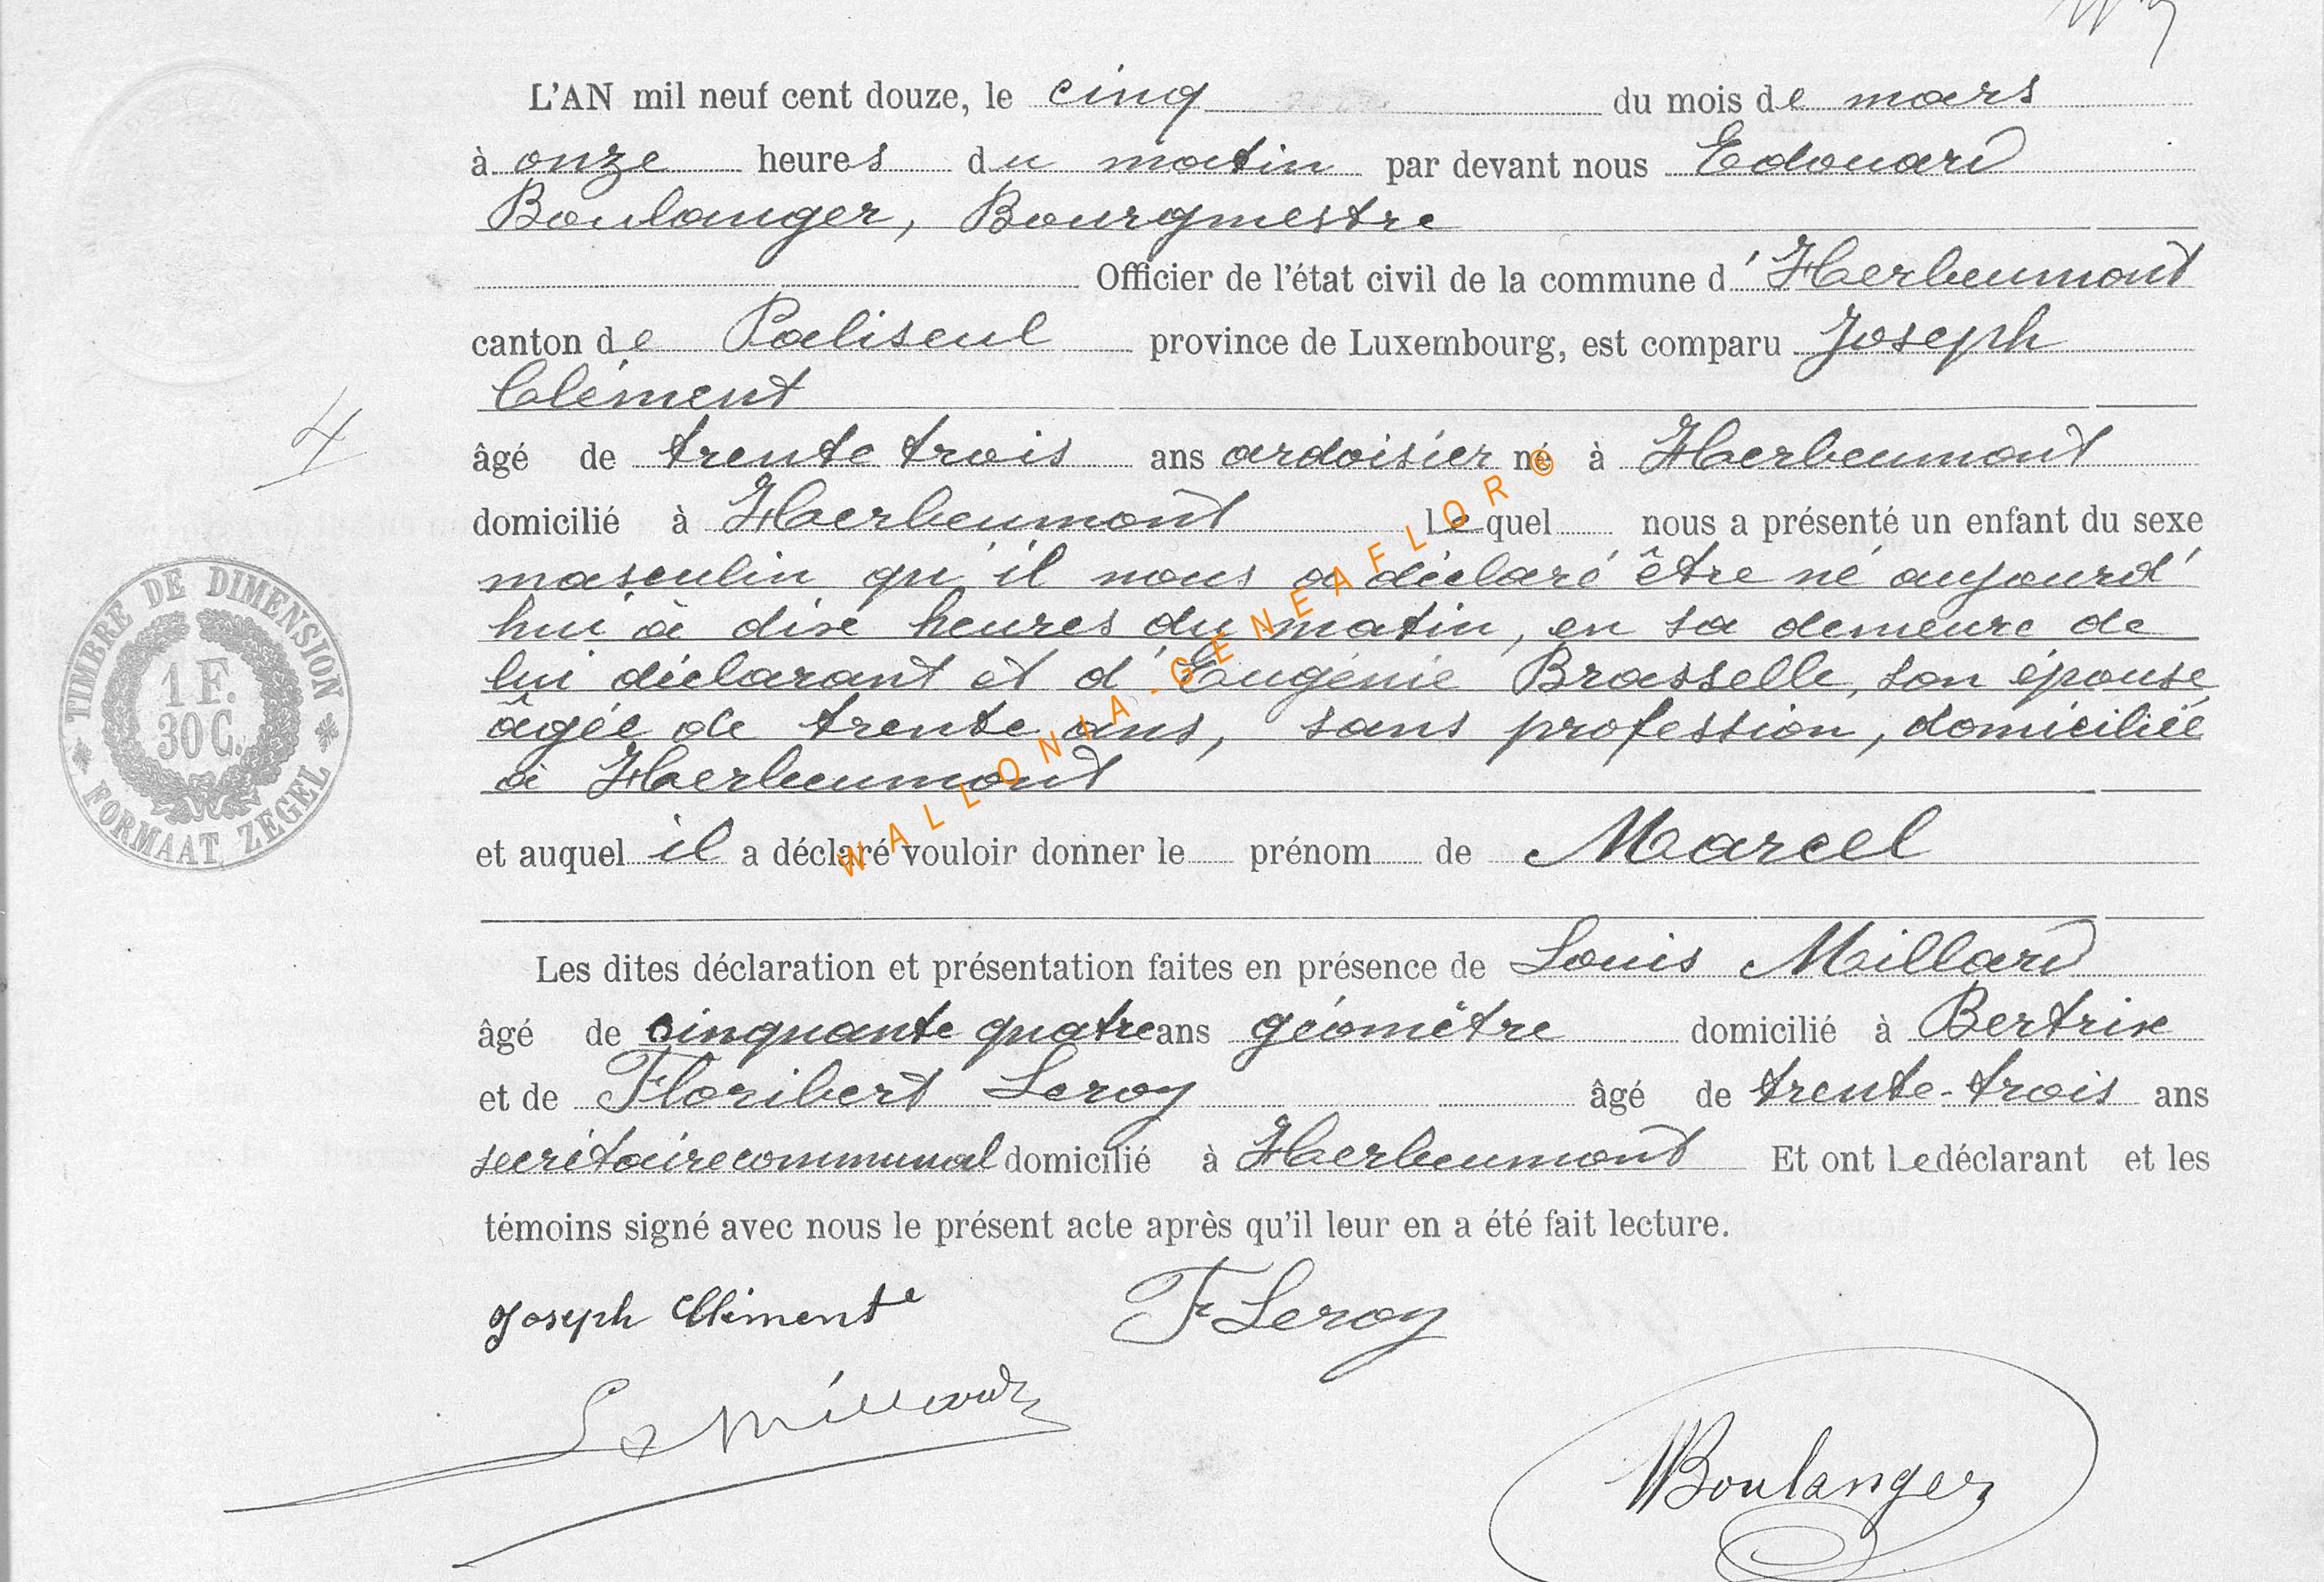 L'AN mil neuf cent douze, le cinq du mois de mars
à onze heures du matin par devant nous Edouard
Boulanger, Bourgmestre
Officier de l'état civil de la commune d'Herbeumont
canton de Paliseul province de Luxembourg, est comparu Joseph
Clément
4
âgé de trente trois ans ardoisier né à Herbeumont
domicilié à Herbeumont lequel nous a présenté un enfant du sexe
masculin qu'il nous a déclaré être né aujourd'
hui à dix heures du matin, en sa demeure de
lui déclarant et d'Eugénie Brasselle, son épouse
âgée de trente ans, sans profession, domiciliée
à Herbeumont
et auquel il a déclaré vouloir donner le prénom de Marcel
Les dites déclaration et présentation faites en présence de Louis Millard
âgé de cinquante quatre ans géomètre domicilié à Bertrix
et de Floribert Leroy âgé de trente-trois ans
secrétaire communal domicilié à Herbeumont Et ont le déclarant et les
témoins signé avec nous le présent acte après qu'il leur en a été fait lecture.
Joseph Clément F Leroy
Ls Millard
Boulanger
TIMBRE DE DIMENSION
1 F.
30 C.
FORMAAT ZEGEL
WALLONIA-GENEAFLOR©